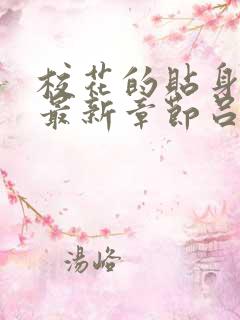 校花的貼身
最新章節呂
湯峪